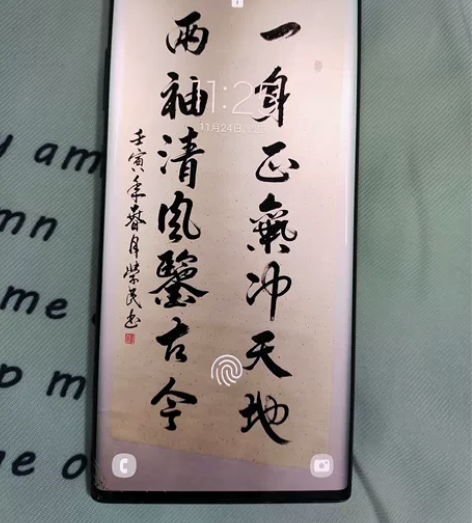 一身正氣沖天地
兩袖清風鑒古今
壬寅年春月榮民書
11月24日
y am
mn
me
p m
e o